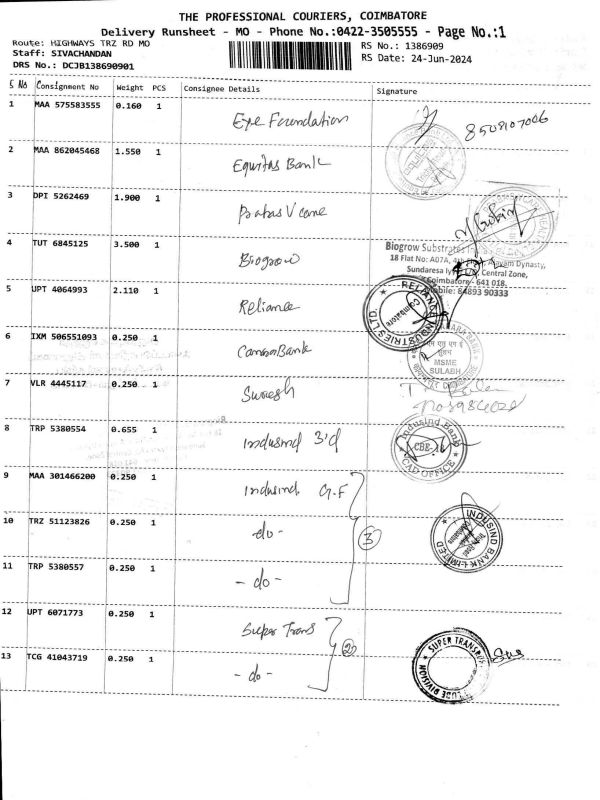 THE PROFESSIONAL COURIERS, COIMBATORE
Delivery Runsheet - MO - Phone No.:0422-3505555 - Page No.:1
Route: HIGHWAYS TRZ RD MO
Staff: SIVACHANDAN
DRS No.: DCJB138690901
RS No.: 1386909
RS Date: 24-Jun-2024
S No Consignment No Weight PCS Consignee Details Signature
1 MAA 575583555 0.160 1 Eye Foundation
8508107006
2 MAA 862045468 1.550 1 Equitas Bank
3 DPI 5262469 1.900 1
4 TUT 6845125 3.500 1 Biogrow
Biogrow Substrates
18 Flat No: A07A, 4th Dynasty,
Sundaresa Central Zone,
Coimbatore - 641 018.
Mobile: 84893 90333
5 UPT 4064993 2.110 1 Reliance
RELIANCE INDUSTRIES LTD.
Coimbatore
6 IXM 506551093 0.250 1 CanaraBank
CANARA BANK
MSME
SULABH
7 VLR 4445117 0.250 1 Suresh
8 TRP 5380554 0.655 1 Indusind 3'd
Indusind Bank
CBE-18
CAD OFFICE
9 MAA 301466200 0.250 1 Indusind G.F
10 TRZ 51123826 0.250 1 -do-
3
INDUSIND BANK LIMITED
11 TRP 5380557 0.250 1 -do-
12 UPT 6071773 0.250 1 Super Trans
2
13 TCG 41043719 0.250 1 -do-
SUPER TRANSPORTS
CODE DIVISION